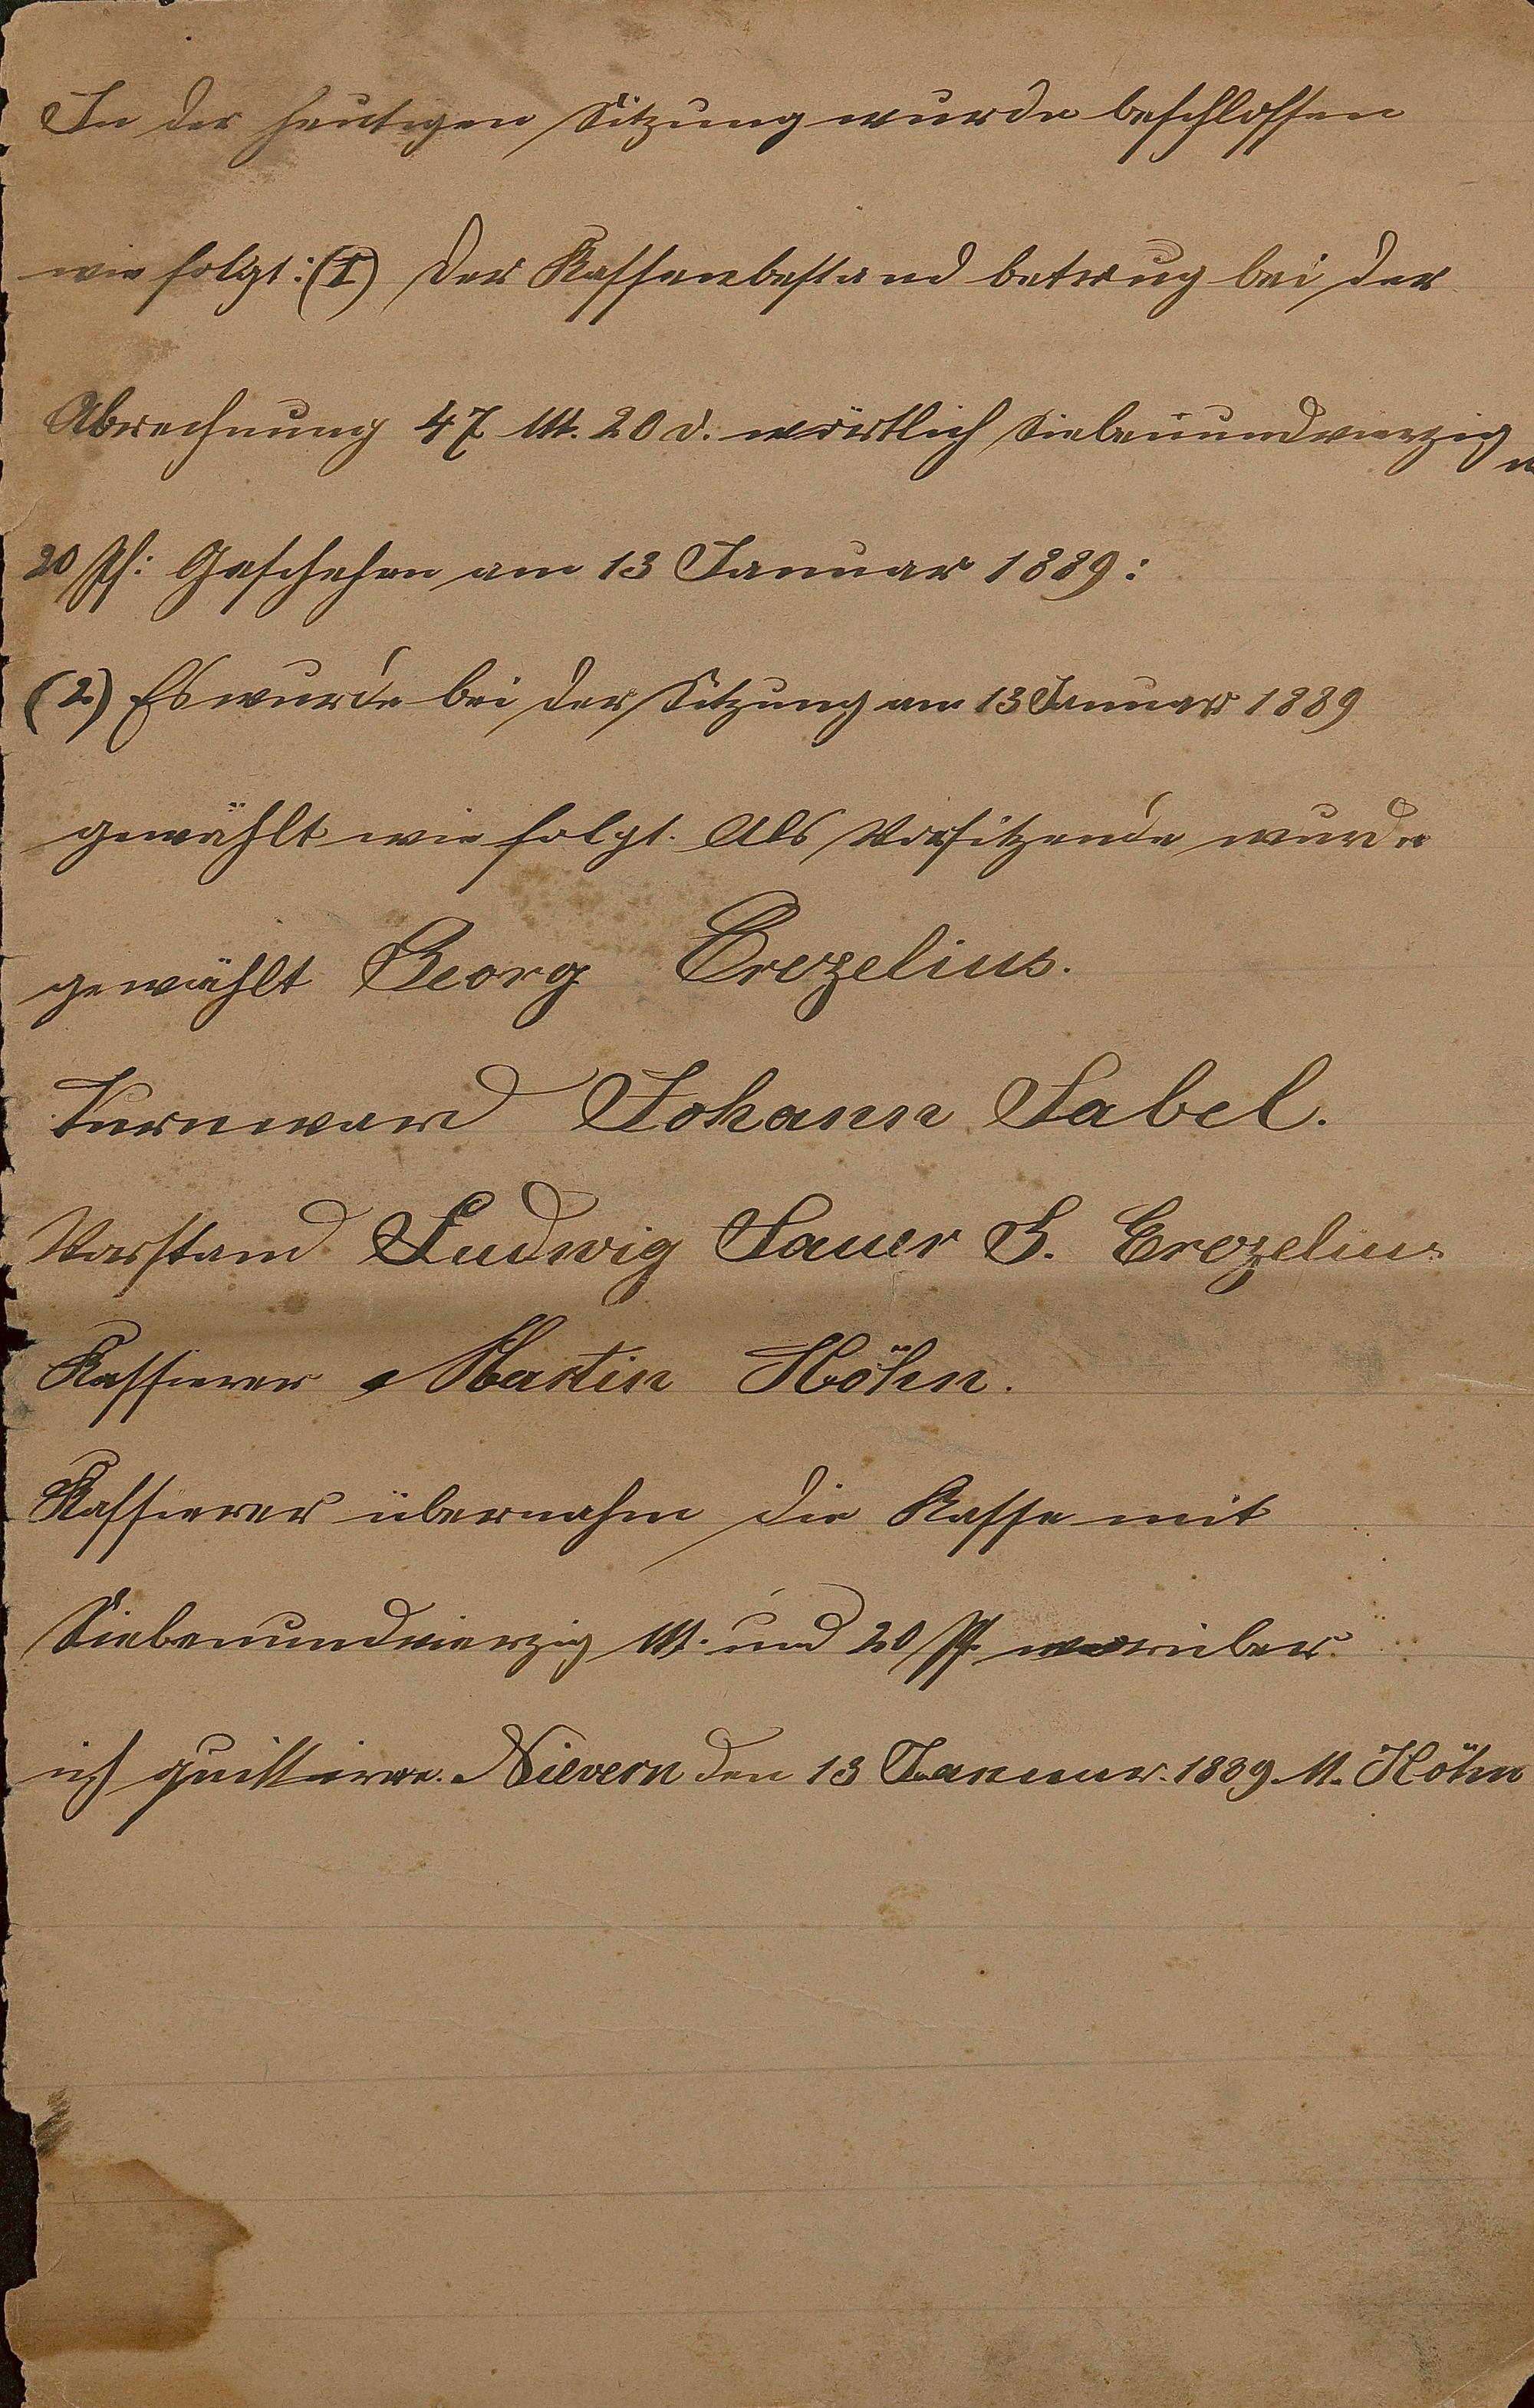 In der heutigen Sitzung wurde beschlossen
wie folgt: (1) Der Kassenbestand betrug bei der
Abrechnung 47 M. 20 d. wörtlich Siebenundvierzig
20 Pf: Geschehen am 13 Januar 1889:
(2) Es wurde bei der Sitzung am 13 Januar 1889
gewählt wie folgt. Als Vorsitzende wurde
gewählt Georg Crezelius.
Turnward Johann Sabel.
Vorstand Ludwig Sauer G. Crezelius
Kassierer Martin Höhn.
Kassierer übernahm die Kasse mit
Siebenundvierzig M. und 20 Pf. worüber
ich quittiere. Nievern den 13 Januar. 1889. M. Höhn